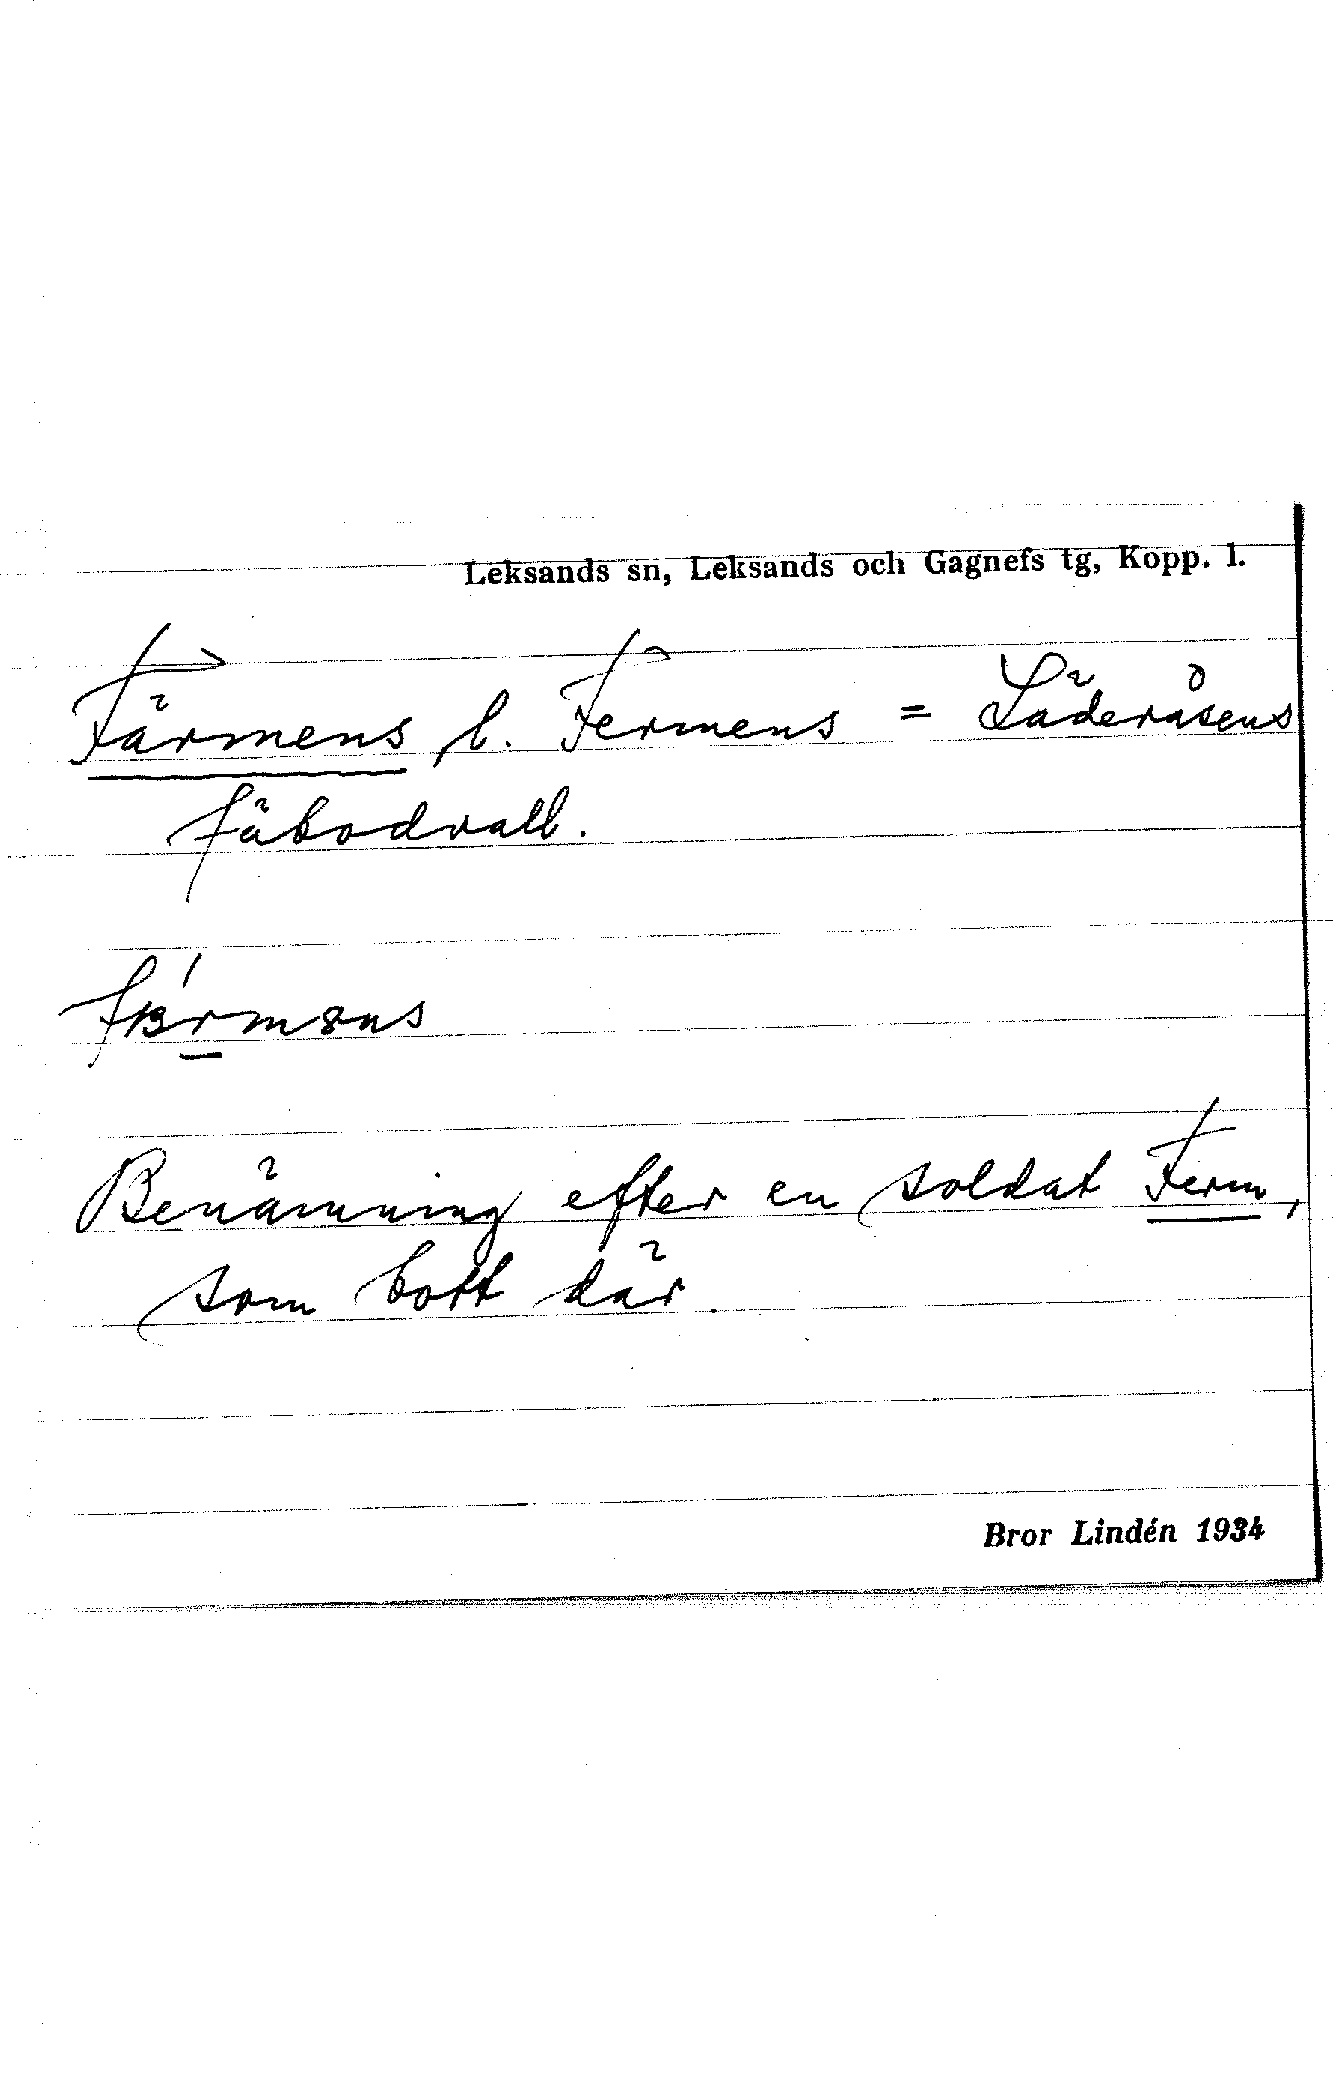 Leksands sn, Leksands och Gagnefs tg, Kopp. l.
Färmens l. Fermens = Läderåsens
fäbodvall.
Benämning efter en soldat Ferm,
som bott där.
Bror Lindén 1934